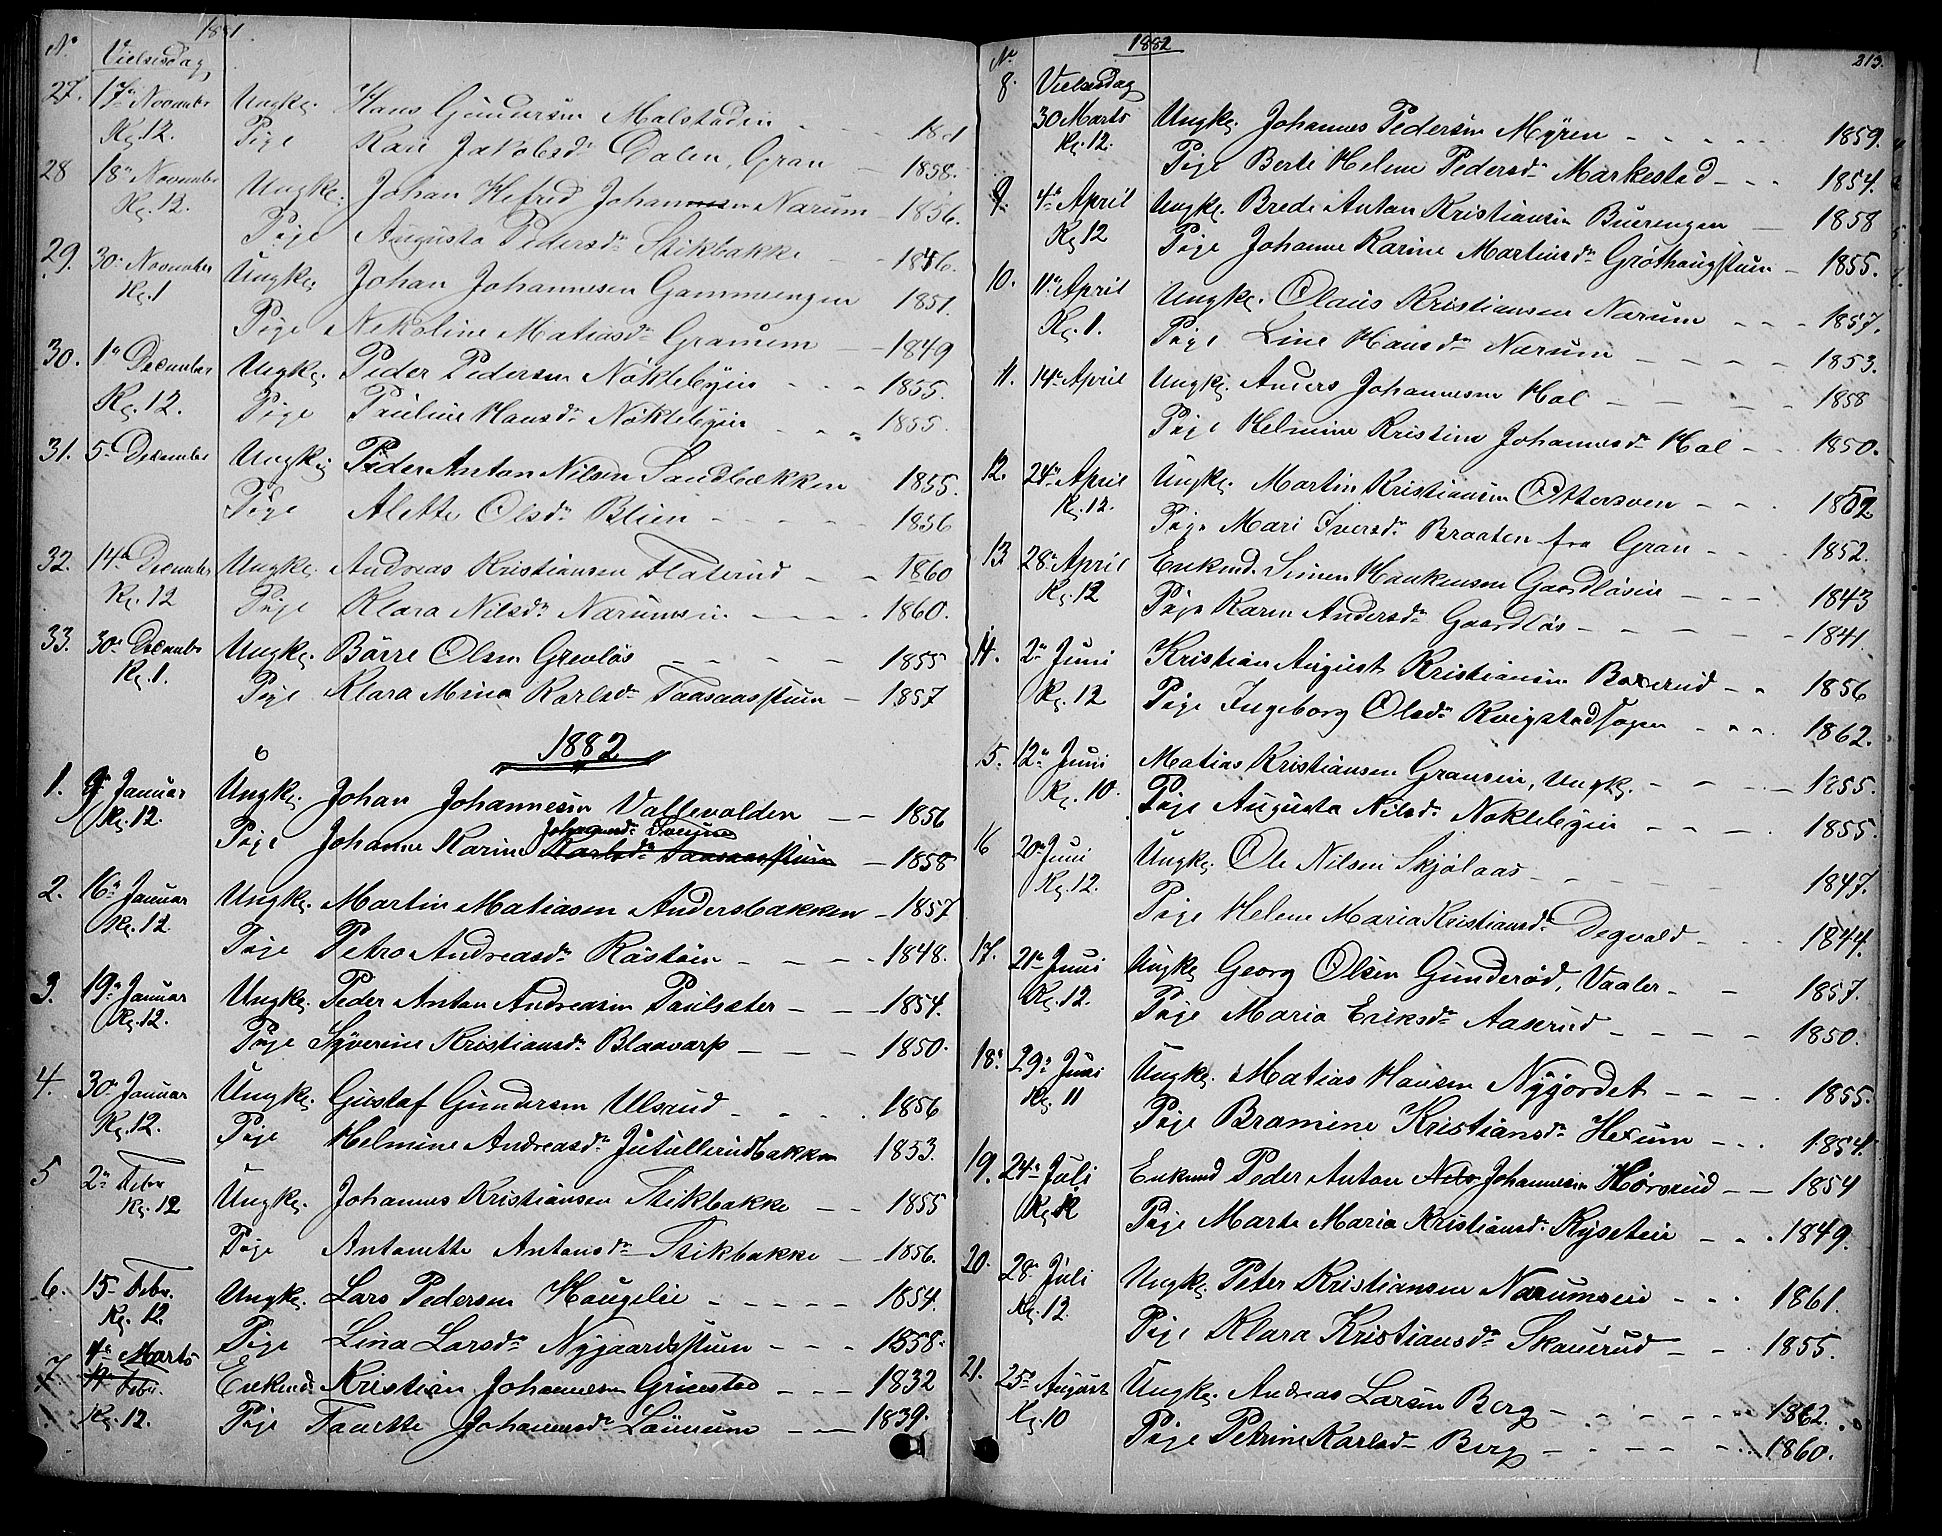 1881.
No Vielsesdag
27. 17de November Ungk. Hans Gundersen Malstaden - - - 18
Kl. 12. Pige Kari Jakobsdr. Dalen, Gran - 1858.
28 18de November Ungk. Johan Johannesen Narum - 1856.
Kl. 12. Pige Augusta Pedersdr. Stikbakke - - 1856.
29. 30. November Ungk. Johan Johannesen Gammeengen 1851.
Kl. 1 Pige Nekoline Matiasdr. Granum - 1849
30. 1de December Ungk. Peder Pedersen Nökleby - - - 1855.
Kl. 12. Pige Pauline Hansdr. Nökleby - - - 1855.
31. 5. December Ungk. Peder Anton Nilsen Sandbækken 1855.
Pige Alette Olsdr. Blien - - - - 1856
32. 14de December Ungk. Andreas Kristiansen Flaterud - - 1860
Kl. 12 Pige Klara Nilsdr. Narumsei - - - - 1860.
33. 30. December Ungk. Börre Olsen Grevlös - - - - 1855
Kl. 1. Pige Klara Mina Karlsdr. Taasaasstuen - 1857
1882
1. 9. Januar Ungk. Johan Johannesen Vallevolden - - 1856
Johannesdr.
Kl. 12. Pige Johanne Karine Karlsdr. Taasaasstuen - 1858
2. 16. Januar Ungk. Martin Matiasen Andersbakken - 1857
Kl. 12 Pige Petra Andreasdr. Röstöen - - - - 1848.
3. 19. Januar Ungk. Peder Anton Andreasen Paulsæter - - - 1854.
Kl. 12. Pige Syverine Kristiansdr. Blaavarp - - - 1850.
4. 30. Januar Ungk. Gustaf Gundersen Ulsrud - - - 1856
Kl. 12. Pige Helmine Andreasdr. Jutullerudbakken 1853.
5 2. Febr Ungk. Johannes Kristiansen Stikbakke - - 1855
Kl. 12 Pige Antonette Antonsdr. Stikbakke - 1856.
6. 15. Febr. Ungk. Lars Pedersen Haugelie - - - - - 1854.
Kl. 12. Pige Lina Larsdr. Nygaardsstuen - - - 1858.
4de Marts
7. Febr. Enkemd. Kristian Johannesen Grinstad - - - 1832
Kl. 12. Pige Johannesdr. - - 1839.
1882
213.
No Vielsesdag
8. 30 Marts Ungk. Johannes Pedersen Myren - - - - - 1859.
Kl. 12. Pige Berte Helene Pedersdr. Markestad - - - 1854.
9. 4de April Ungk. Brede Anton Kristiansen Buerengen - 1858
Kl. 12 Pige Johanne Karine Martinsdr. Gröthaugstuen - 1855.
10. 11te April Ungk. Olaus Kristiansen Narum - - - 1857.
Kl. 1. Pige Line Hansdr. Narum - - - - 1853.
11. 14de April Ungk. Anders Johannesen Hol - - - - 1858
Pige Helmine Kristine Johannesdr. Hol - - 1850.
12. 24de April Ungk. Martin Kristiansen Ottersven - - - 1852
Kl. 12. Pige Mari Iversdr. Braaten fra Gran - - - 1852.
13 28. April Enkemd. Simen Haakensen Gaardlösen - - - 1843
Kl. 12 Pige Karen Andersdr. Gaardlös - - - - - 1841.
14. 2. Juni Kristian August Kristiansen Boxerud - - 1856
Kl. 12 Pige Ingeborg Olsdr. Kvigstad - - - 1862.
5. 12. Juni Matias Kristiansen Granseie, Ungk. - - - 1855.
Kl. 10. Pige Augusta Nilsdr. Nökleby - - - 1855.
16 20. Juni Ungk. Ole Nilsen Skjölaas - - - - 1847.
Kl. 12. Pige Helene Maria Kristiansdr. Degvold - - - 1844.
17. 21de Juni Ungk. Georg Olsen Gunderöd, Vaaler - - 1857.
Kl. 12. Pige Maria Eriksdr. Aaserud - - - - 1850.
18. 29. Juni Ungk. Matias Hansen Nyjordet - - - - 1855.
Kl. 11 Pige Bramine Kristiansdr. Hexum - - - 1854.
19. 24. Juli Enkemd Peder Anton Nils Johannesen Hörsrud - - 1854
Kl. 12 Pige Marte Maria Kristiansdr. Ryseteie - - - 1849.
20. 28. Juli Ungk. Peter Kristiansen Narumseie - - - 1861.
Kl. 12. Pige Klara Kristiansdr. Skaurud - - - 1855.
21. 25. August Ungk. Andreas Larsen Berg - - - - - 1862.
Kl. 10 Pige Petrine Karlsdr. Berg - - - - - 1860.